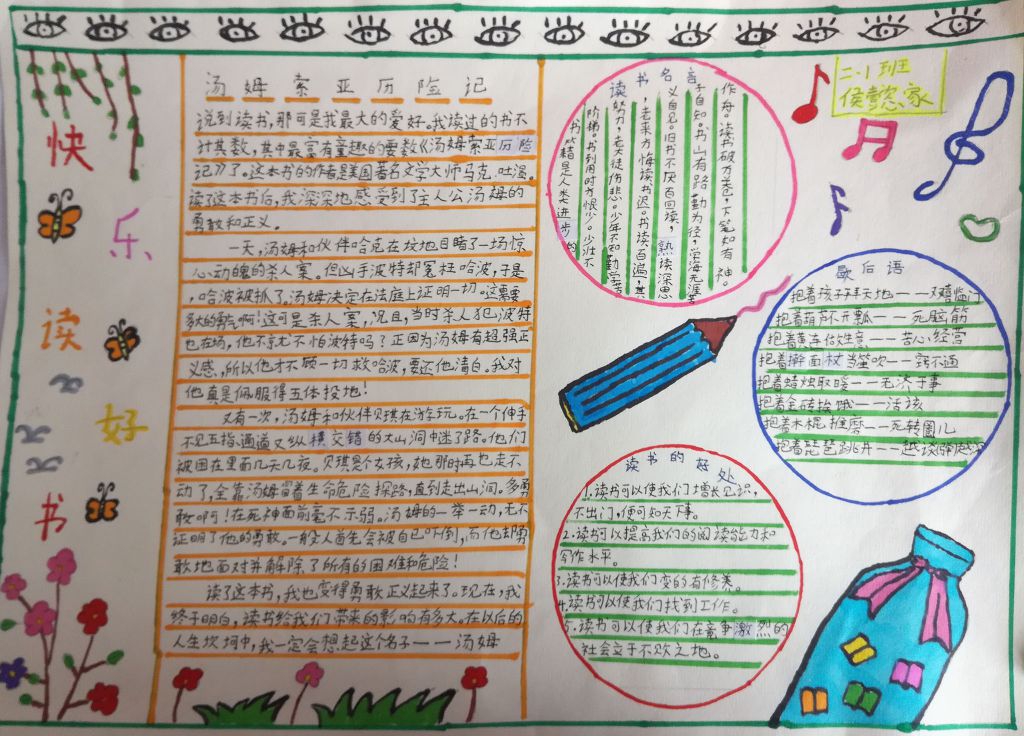 快
乐
读
好
书
汤姆索亚历险记
说到读书，那可是我最大的爱好。我读过的书不
计其数，其中最富有童趣的要数《汤姆索亚历险
记》了。这本书的作者是美国著名文学大师马克.吐温。
读了这本书后，我深深地感受到了主人公汤姆的
勇敢和正义。
一天，汤姆和伙伴哈克在坟地目睹了一场惊
心动魄的杀人案。但凶手波特却冤枉哈波，于是
，哈波被抓了。汤姆决定在法庭上证明一切。这需要
多大的勇气啊！这可是杀人案，况且，当时杀人犯波特
也在场，他不就尤不怕波特吗？正因为汤姆有超强正
义感，所以他才不顾一切救哈波，要还他清白。我对
他真是佩服得五体投地！
又有一次，汤姆和伙伴贝琪在游玩。在一个伸手
不见五指、通道又纵横交错的大山洞中迷了路。他们
被困在里面几天几夜。贝琪是个女孩，她那时再也走不
动了，全靠汤姆冒着生命危险探路，直到走出山洞。多勇
敢啊！在死神面前毫不示弱。汤姆的一举一动，无不
证明了他的勇敢。一般人首先会被自己吓倒，而他却勇
敢地面对并解除了所有的困难和危险！
读了这本书，我也变得勇敢正义起来了。现在，我
终于明白，读书给我们带来的影响有多大。在以后的
人生坎坷中，我一定会想起这个名子——汤姆
读书名言
作舟。读书破万卷，下笔如有神。
子自知。书山有路勤为径，学海无涯苦
义自见。旧书不厌百回读，熟读深思
老来方悔读书迟。书读百遍，其
努力，老大徒伤悲。少年不知勤学苦
阶梯。书到用时方恨少。少壮不
书籍是人类进步的
二·1班
侯懿家
歇后语
抱着孩子拜天地——双喜临门
抱着葫芦不开瓢——死脑筋
抱着黄连做生意——苦心经营
抱着擀面杖当笙吹——窍不通
抱着蜡烛取暖——无济于事
抱着金砖挨饿——活该
抱着木棍推磨——死转圈儿
抱着琵琶跳井——越谈越深
读书的好处
1.读书可以使我们增长见识，
不出门，便可知天下事。
2.读书可以提高我们的阅读能力和
写作水平。
3.读书可以使我们变的有修养。
4.读书可以使我们找到工作。
5.读书可以使我们在竞争激烈的
社会立于不败之地。